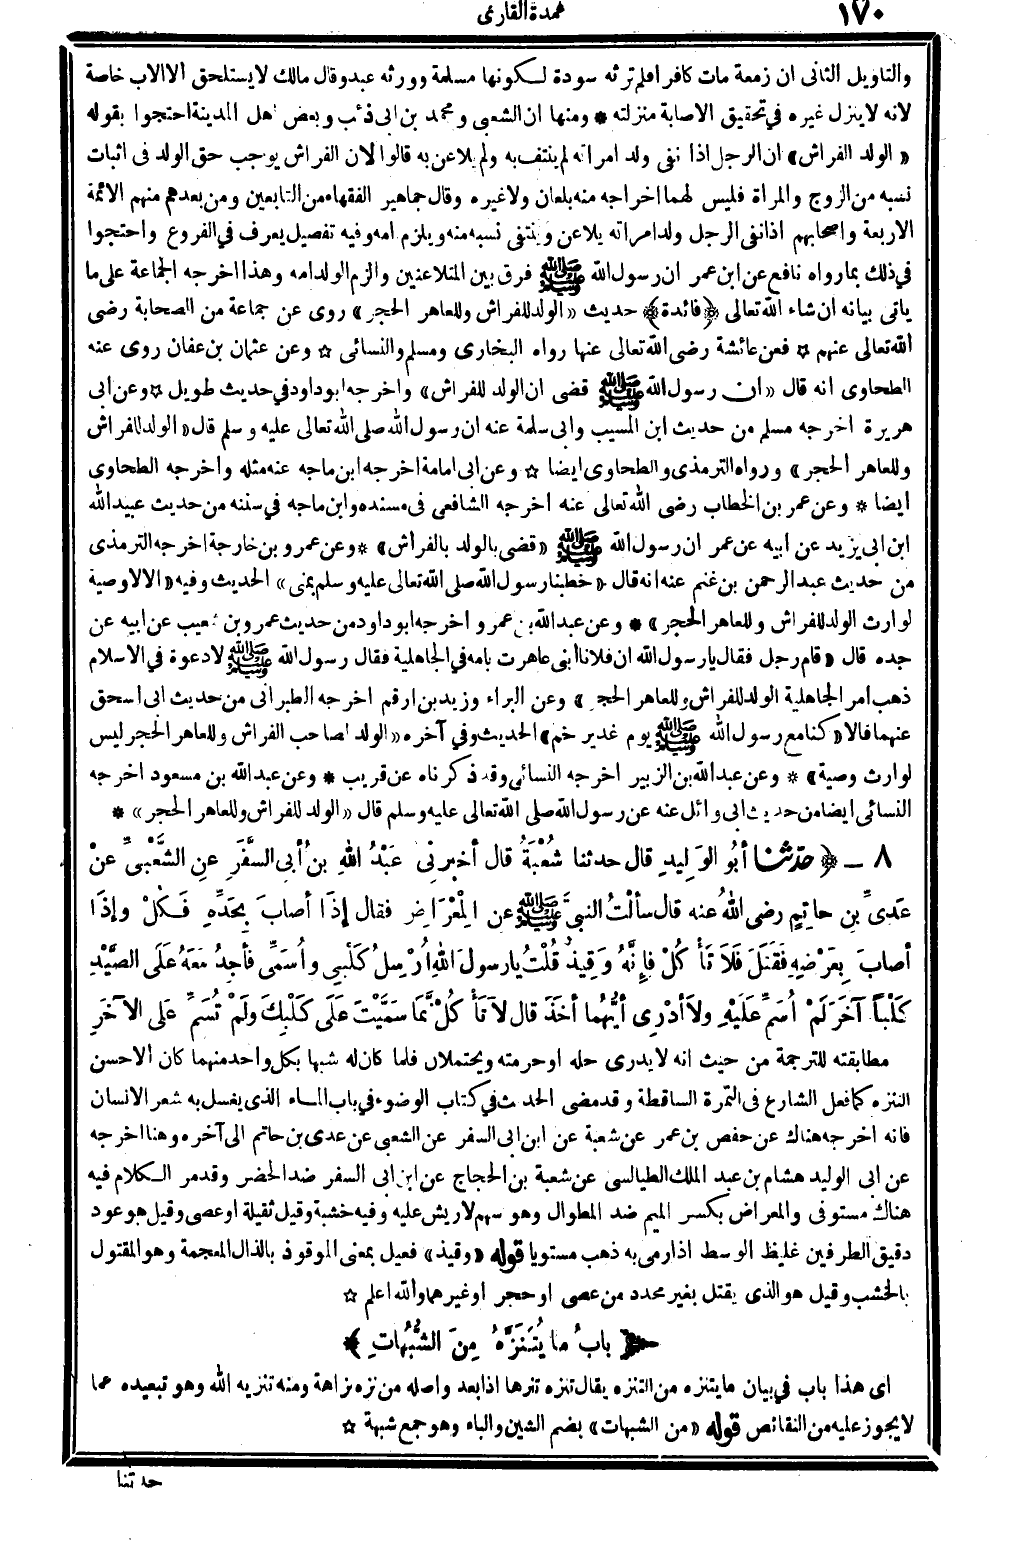 ١٧٠
عمدة القارى
والتاويل الثانى ان زمعة مات كافرا فلم ترثه سودة لكونها مسلمة وورثه عبد وقال مالك لا يستلحق الا الاب خاصة
لانه لا ينزل غيره فى تحقيق الاصابة منزلته * ومنها ان الشعبى ومحمد بن ابى ذئب وبعض اهل المدينة احتجوا بقوله
« الولد الفراش» ان الرجل اذا نفى ولد امرأته لم ينتف به ولم يلاعن به قالوا لان الفراش يوجب حق الولد فى اثبات
نسبه من الزوج والمرأة فليس لهما اخراجه منه بلعان ولا غيره وقال جماهير الفقهاء من التابعين ومن بعدهم منهم الائمة
الاربعة واصحابهم اذا نفى الرجل ولد امرأته يلاعن وينتفى نسبه منه ويلزم امه وفيه تفصيل يعرف فى الفروع واحتجوا
فى ذلك بما رواه نافع عن ابن عمر ان رسول الله ﷺ فرق بين المتلاعنين والزم الولد امه وهذا اخرجه الجماعة على ما
يأتى بيانه ان شاء الله تعالى ﴿فائدة﴾ حديث «الولد للفراش وللعاهر الحجر» روى عن جماعة من الصحابة رضى
الله تعالى عنهم ☆ فعن عائشة رضى الله تعالى عنها رواه البخارى ومسلم والنسائى ☆ وعن عثمان بن عفان روى عنه
الطحاوى انه قال «ان رسول الله ﷺ قضى ان الولد للفراش» واخرجه ابو داود فى حديث طويل ☆ وعن ابى
هريرة اخرجه مسلم من حديث ابن المسيب وابى سلمة عنه ان رسول الله صلى الله تعالى عليه وسلم قال «الولد للفراش
وللعاهر الحجر» ورواه الترمذى والطحاوى ايضا ☆ وعن ابى امامة اخرجه ابن ماجه عنه مثله واخرجه الطحاوى
ايضا * وعن عمر بن الخطاب رضى الله تعالى عنه اخرجه الشافعى فى مسنده وابن ماجه فى سننه من حديث عبيد الله
ابن ابى يزيد عن ابيه عن عمر ان رسول الله ﷺ «قضى بالولد بالفراش» * وعن عمرو بن خارجة اخرجه الترمذى
من حديث عبد الرحمن بن غنم عنه انه قال « خطبنا رسول الله صلى الله تعالى عليه وسلم بمنى» الحديث وفيه «الا لا وصية
لوارث الولد للفراش وللعاهر الحجر» * وعن عبد الله بن عمرو اخرجه ابو داود من حديث عمرو بن شعيب عن ابيه عن
جده قال «قام رجل فقال يا رسول الله ان فلانا ابنى عاهرت بامه فى الجاهلية فقال رسول الله ﷺ لا دعوة فى الاسلام
ذهب امر الجاهلية الولد للفراش وللعاهر الحجر» وعن البراء وزيد بن ارقم اخرجه الطبرانى من حديث ابى اسحق
عنهما قالا «كنا مع رسول الله ﷺ يوم غدير خم» الحديث وفى آخره «الولد لصاحب الفراش وللعاهر الحجر ليس
لوارث وصية» * وعن عبد الله بن الزبير اخرجه النسائى وقد ذكرناه عن قريب * وعن عبد الله بن مسعود اخرجه
النسائى ايضا من حديث ابى وائل عنه عن رسول الله صلى الله تعالى عليه وسلم قال «الولد للفراش وللعاهر الحجر» *
٨ ـ ﴿ حَدَّثَنَا أبُو الوَلِيدِ قال حدثنا شُعْبَةُ قال أخبرنى عَبْدُ اللهِ بنُ أبى السَّفَرِ عنِ الشَّعْبىِّ عنْ
عَدِىِّ بنِ حاتِمٍ رضى اللهُ عنه قال سألْتُ النبىَّ ﷺ عنِ المِعْرَاضِ فقال إذَا أصابَ بِحَدِّهِ فَكُلْ وإذَا
أصابَ بِعَرْضِهِ فَقَتَلَ فَلاَ تَأكُلْ فإنَّهُ وَقِيذٌ قُلْتُ يا رسولَ اللهِ أُرْسِلُ كَلْبِى وأُسَمِّى فأجِدُ مَعَهُ عَلَى الصَّيْدِ
كَلْباً آخَرَ لَمْ أُسَمِّ عَلَيْهِ ولاَ أدْرِى أيُّهُما أخَذَ قال لاَ تَأكُلْ إنَّمَا سَمَّيْتَ عَلَى كَلْبِكَ ولَمْ تُسَمِّ على الآخَرِ
مطابقته للترجمة من حيث انه لا يدرى حله او حرمته ويحتملان فلما كان له شبها بكل واحد منهما كان الاحسن
التنزه كما فعل الشارع فى التمرة الساقطة وقد مضى الحديث فى كتاب الوضوء فى باب الماء الذى يغسل به شعر الانسان
فانه اخرجه هناك عن حفص بن عمر عن شعبة عن ابن ابى السفر عن الشعبى عن عدى بن حاتم الى آخره وهنا اخرجه
عن ابى الوليد هشام بن عبد الملك الطيالسى عن شعبة بن الحجاج عن ابن ابى السفر ضد الحضر وقد مر الكلام فيه
هناك مستوفى والمعراض بكسر الميم ضد المطوال وهو سهم لا ريش عليه وفيه خشبة وقيل ثقيلة او عصى وقيل هو عود
دقيق الطرفين غليظ الوسط اذا رمى به ذهب مستويا قوله «وقيذ» فعيل بمعنى الموقوذ بالذال المعجمة وهو المقتول
بالخشب وقيل هو الذى يقتل بغير محدد من عصى او حجر او غيرهما والله اعلم ☆
﴿ بابُ ما يُتَنَزَّهُ مِنَ الشُّبُهاتِ ﴾
اى هذا باب فى بيان ما يتنزه من التنزه يقال تنزه تنزها اذا بعد واصله من نزه نزاهة ومنه تنزيه الله وهو تبعيده عما
لا يجوز عليه من النقائص قوله «من الشبهات» بضم الشين والباء وهو جمع شبهة ☆
حدثنا